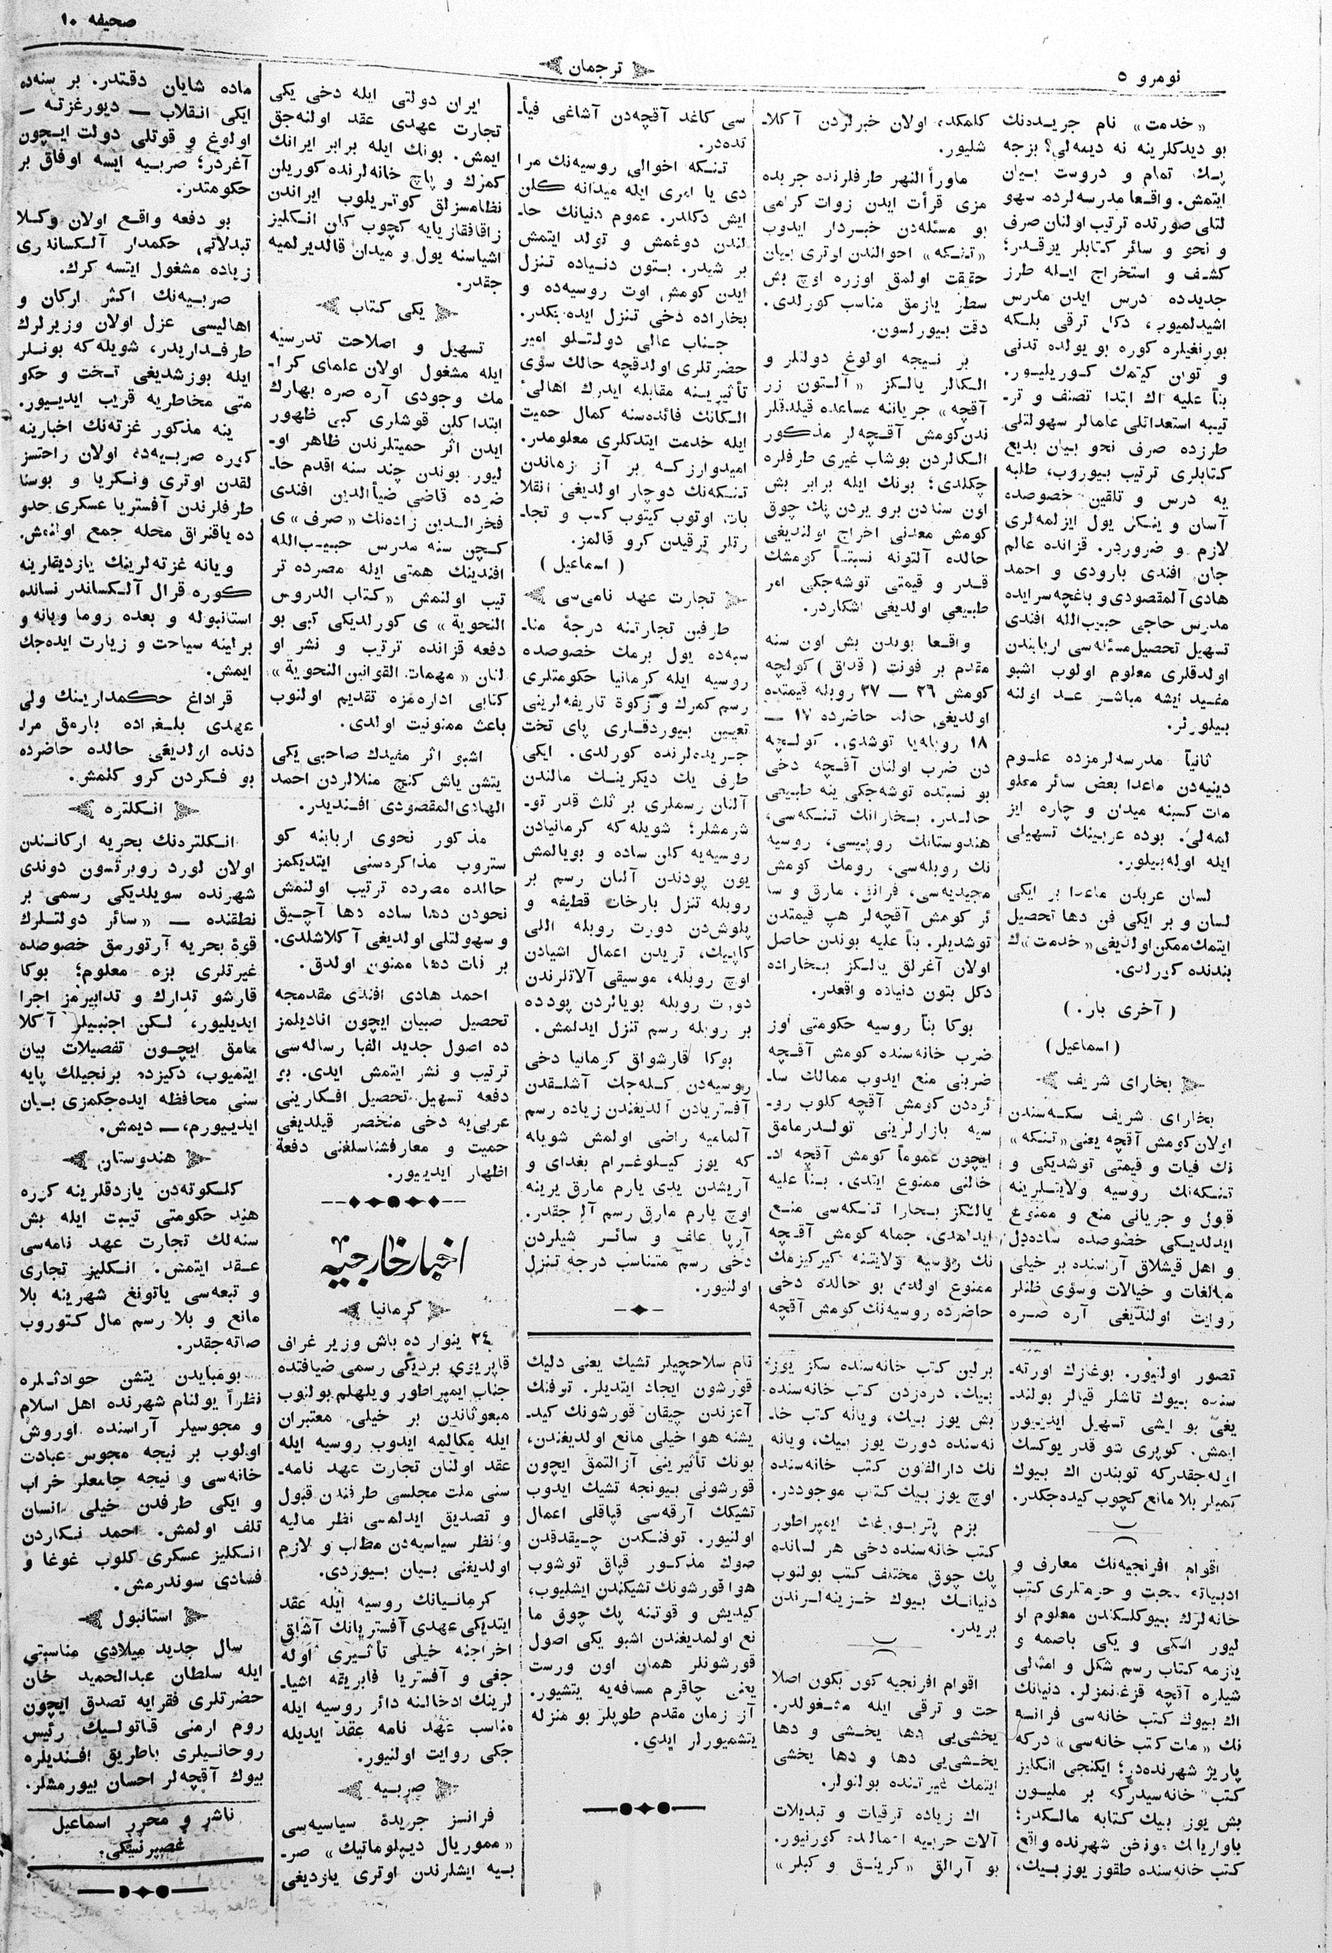 نومرو ٥
ترجمان
صحیفه ١٠
«خدمت» نام جریده‌نك
بو دیدكلرینه نه دیمه‌لی؟ بزجه
پك تمام و دروست بیان
ایتمش. واقعا مدرسه‌لرده سهو
لتلی صورتده ترتیب اولنان صرف
و نحو و سائر كتابلر یوقدر؛
كشف و استخراج ایله طرز
جدیده درس ایدن مدرس
اشیدلمیوب، دكل ترقی بلكه
بورنغیلره كوره بو یولده تدنی
و توبان كیتمك كوریلیور.
بناً علیه اك ابتدا تصنف و تر-
تیبه استعدادلی عالملر سهولتلی
طرزده صرف نحو بیان بدیع
كتابلری ترتیب بیوروب، طلبه
یه درس و تلقین خصوصده
آسان و ینكل یول ایزلمه‌لری
لازم و ضروردر. قزانده عالم
جان افندی بارودی و احمد
هادی المقصودی و باغچه‌سرایده
مدرس حاجی حبیب‌الله افندی
تسهیل تحصیل مسئله‌سی اربابندن
اولدقلری معلوم اولوب اشبو
مفید ایشه مباشر عد اولنه
بیلورلر.
ثانیاً مدرسه‌لرمزده علوم
دینیه‌دن ماعدا بعض سائر معلو
مات كسبنه میدان و چاره ایز
لمه‌لی. بوده عربینك تسهیلی
ایله اوله بیلور.
لسان عربدن ماعدا بر ایكی
لسان و بر ایكی فن دها تحصیل
ایتمك ممكن اولدیغی «خدمت» ك
بندنده كورلدی.
(آخری بار.)
(اسماعیل)
بخارای شریف
بخارای شریف سكه‌سندن
اولان كومش آقچه یعنی «تنكه»
نك فیات و قیمتی توشدیكی و
تنكه‌نك روسیه ولایتلرینه
قبول و جریانی منع و ممنوع
ایدلدیكی خصوصده ساده‌دل
و اهل قیشلاق آراسنده بر خیلی
مبالغات و خیالات وسؤی ظنلر
روایت اولندیغی آره صره
كلمكده اولان خبرلردن آكلا-
شلیور.
ماورأ النهر طرفلرنده جریده
مزی قرأت ایدن زوات كرامی
بو مسئله‌دن خبردار ایدوب
«تنكه» احوالندن اوتری بیان
حقیقت اولمق اوزره اوچ بش
سطر یازمق مناسب كورلدی.
دقت بیورلسون.
بر نیجه اولوغ دولتلر و
الكالر یالكز «آلتون زر
آقچه» جریاننه مساعده قیلدقلر
ندن كومش آقچه‌لر مذكور
الكالردن بوشاب غیری طرفلره
چكلدی؛ بونك ایله برابر بش
اون سنادن برو یردن پك چوق
كومش معدنی اخراج اولندیغی
حالده آلتونه نسبتاً كومشك
قدر و قیمتی توشه‌جكی امر
طبیعی اولدیغی اشكاردر.
واقعا بوندن بش اون سنه
مقدم بر فونت (قداق) كولچه
كومش ٢٦ — ٢٧ روبله قیمتده
اولدیغی حالده حاضرده ١٧ —
١٨ روبله‌یه توشدی. كولچه
دن ضرب اولنان آقچه دخی
بو نسبتده توشه‌جكی ینه طبیعی
حالدر. بخارانك تنكه‌سی،
هندوستانك روپیسی، روسیه
نك روبله‌سی، رومك كومش
مجیدیه‌سی، فرانق، مارق و سا
ئر كومش آقچه‌لر هپ قیمتدن
توشدیلر. بناً علیه بوندن حاصل
اولان آغرلق یالكز بخاراده
دكل بتون دنیاده واقعدر.
بوكا بناً روسیه حكومتی اوز
ضرب خانه‌سنده كومش آقچه
ضربنی منع ایدوب ممالك سا-
ئره‌دن كومش آقچه كلوب رو-
سیه بازارلرینی تولدرمامق
ایچون عموماً كومش آقچه اد-
خالنی ممنوع ایتدی. بناً علیه
یالكز بخارا تنكه‌سی منع
ایدلمدی، جمله كومش آقچه
نك روسیه ولایتنه كیركیزمك
ممنوع اولدی. بو حالده دخی
حاضرده روسیه‌نك كومش آقچه
سی كاغد آقچه‌دن آشاغی فیأ-
تده‌در.
تنكه احوالی روسیه‌نك مرا
دی یا امری ایله میدانه كلن
ایش دكلدر. عموم دنیانك حا-
لندن دوغمش و تولد ایتمش
بر شیدر. بتون دنیاده تنزل
ایدن كومش اوت روسیه‌ده و
بخاراده دخی تنزل ایده‌جكدر.
جناب عالی دولتلو امیر
حضرتلری اولدقچه حالك سؤی
تأثیرینه مقابله ایدرك اهالیٔ
الكانك فائده‌سنه كمال حمیت
ایله خدمت ایتدكلری معلومدر.
امیدوارزكه بر آز زماندن
تنكه‌نك دوچار اولدیغی انقلا
بات اوتوب كیتوب كسب و تجا-
رتلر ترقیدن كرو قالمز.
(اسماعیل)
تجارت عهد نامه‌سی
طرفین تجارتنه درجهٔ منا-
سبه‌ده یول برمك خصوصده
روسیه ایله كرمانیا حكومتلری
رسم كمرك و زكوة تاریفه‌لرینی
تعیین بیوردقلری پای تخت
جریده‌لرنده كورلدی. ایكی
طرف یك دیكرینك مالندن
آلنان رسملری بر ثلث قدر تو-
شرمشلر؛ شویله كه كرمانیادن
روسیه‌یه كلن ساده و بویالمش
یون پودندن آلنان رسم بر
روبله تنزل بارخات قطیفه و
پلوش‌دن دورت روبله اللی
كاپیك، تریدن اعمال اشیادن
اوچ روبله، موسیقی آلاتلرندن
دورت روبله بویالردن پودده
بر روبله رسم تنزل ایدلمش.
بوكا قارشولق كرمانیا دخی
روسیه‌دن كله‌جك آشلقدن
آفستریادن آلدیغندن زیاده رسم
آلمامیه راضی اولمش شویله
كه یوز كیلوغرام بغدای و
آریشدن یدی یارم مارق یرینه
اوچ یارم مارق رسم آله جقدر.
آرپا علف و سائر شیلردن
دخی رسم متناسب درجه تنزل
اولنیور.
ایران دولتی ایله دخی یكی
تجارت عهدی عقد اولنه‌جق
ایمش. بونك ایله برابر ایرانك
كمرك و پاچ خانه‌لرنده كوریلن
نظامسزلق كوتریلوب ایراندن
زاقافقازیایه كچوب كلن انكلیز
اشیاسنه یول و میدان قالدیرلمیه
جقدر.
یكی كتاب
تسهیل و اصلاحت تدرسیه
ایله مشغول اولان علمای كرا-
مك وجودی آره صره بهارك
ابتدا كلن قوشلری كبی ظهور
ایدن اثر حمیتلرندن ظاهر او-
لیور. بوندن چند سنه اقدم حا-
ضرده قاضی ضیأالدین افندی
فخرالدین زاده‌نك «صرف» ی
كچن سنه مدرس حبیب‌الله
افندینك همتی ایله مصرده تر
تیب اولنمش «كتاب الدروس
النحویة» ی كورلدیكی كبی بو
دفعه قزانده ترتیب و نشر او
لنان «مهمات القوانین النحویة»
كتابی اداره‌مزه تقدیم اولنوب
باعث ممنونیت اولدی.
اشبو اثر مفیدك صاحبی یكی
یتشن یاش كنچ منلالردن احمد
الهادی المقصودی افندیدر.
مذكور نحوی اربابنه كو
ستروب مذاكره‌سنی ایتدیكمز
حالده مصرده ترتیب اولنمش
نحودن دها ساده دها آچیق
و سهولتلی اولدیغی آكلاشلدی.
بر قات دها ممنون اولدق.
احمد هادی افندی مقدمجه
تحصیل صبیان ایچون انادیلمز
ده اصول جدید الفبا رساله‌سی
ترتیب و نشر ایتمش ایدی. بو
دفعه تسهیل تحصیل افكارینی
عربی‌یه دخی منحصر قیلدیغی
حمیت و معارفشناسلغنی دفعة
اظهار ایدییور.
اخبار خارجیه
كرمانیا
٢٤ ینوار ده باش وزیر غراف
قاپریوی بردیكی رسمی ضیافتده
جناب ایمپراطور ویلهلم بولنوب
مبعوثاندن بر خیلی معتبران
ایله مكالمه ایدوب روسیه ایله
عقد اولنان تجارت عهد نامه-
سنی ملت مجلسی طرفندن قبول
و تصدیق ایدلمسی نظر مالیه
و نظر سیاسیه‌دن مطلب و لازم
اولدیغنی بیان بیوردی.
كرمانیانك روسیه ایله عقد
ایتدیكی عهدی آفستریانك آشلق
اخراجنه خیلی تأثیری اوله
جغی و آفستریا فابریقه اشیا-
لرینك ادخالنه دائر روسیه ایله
مناسب عهد نامه عقد ایدیله
جكی روایت اولنیور.
صربیه
فرانسز جریدهٔ سیاسیه‌سی
«مموریال دیپلوماتیك» صر-
بیه ایشلرندن اوتری یازدیغی
ماده شایان دقتدر. بر سنه‌ده
ایكی انقلاب — دیورغزته —
اولوغ و قوتلی دولت ایچون
آغردر؛ صربیه ایسه اوفاق بر
حكومتدر.
بو دفعه واقع اولان وكلا
تبدلاتی حكمدار آلكساندری
زیاده مشغول ایتسه كرك.
صربیه‌نك اكثر اركان و
اهالیسی عزل اولان وزیرلرك
طرفداریدر، شویله كه بونلر
ایله بوزشدیغی تخت و حكو
متی مخاطریه قریب ایدییور.
ینه مذكور غزته‌نك اخبارینه
كوره صربیه‌ده اولان راحتسز
لقدن اوتری ونكریا و بوسنا
طرفلرندن آفستریا عسكری حدو
ده یاقنراق محله جمع اولنمش.
ویانه غزته‌لرینك یازدیقارینه
كوره قرال آلكساندر نسانده
استانبوله و بعده روما ویانه و
برلینه سیاحت و زیارت ایده‌جك
ایمش.
قراداغ حكمدارینك ولی
عهدی بلغراده بارمق مرا
دنده اولدیغی حالده حاضرده
بو فكردن كرو كلمش.
انكلتره
انكلتره‌نك بحریه اركانندن
اولان لورد روبرتسون دوندی
شهرنده سویلدیكی رسمی بر
نطقنده — «سائر دولتلرك
قوهٔ بحریه آرتورمق خصوصده
غیرتلری بزه معلوم؛ بوكا
قارشو تدارك و تدابیرمز اجرا
ایدیلیور، لكن اجنبیلر آكلا
مامق ایچون تفصیلات بیان
ایتمیوب، دكیزده برنجیلك پایه
سنی محافظه ایده‌جكمزی بیان
ایدییورم،— دیمش.
هندوستان
كلكوته‌دن یازدقلرینه كوره
هند حكومتی تیبت ایله بش
سنه‌لك تجارت عهد نامه‌سی
عقد ایتمش. انكلیز تجاری
و تبعه‌سی یاتونغ شهرینه بلا
مانع و بلا رسم مال كتوروب
صاته جقدر.
بومبایدن یتشن حوادثلره
نظراً یولنام شهرنده اهل اسلام
و مجوسیلر آراسنده اوروش
اولوب بر نیجه مجوس عبادت
خانه‌سی و نیجه جامعلر خراب
و ایكی طرفدن خیلی انسان
تلف اولمش. احمد نكاردن
انكلیز عسكری كلوب غوغا و
فسادی سوندرمش.
استانبول
سال جدید میلادی مناسبتی
ایله سلطان عبدالحمید خان
حضرتلری فقرایه تصدق ایچون
روم ارمنی قتاتولیك رئیس
روحانیلری باطریق افندیلره
بیوك آقچه‌لر احسان بیورمشلر.
ناشر و محرر اسماعیل
غصپرنسكی.
تصور اولنیور. بوغازك اورته-
سنده بیوك تاشلر قیالر بولند-
یغی بو ایشی تسهیل ایدییور
ایمش. كوپری شو قدر یوكسك
اوله‌جقدركه توبندن اك بیوك
كمیلر بلا مانع كچوب كیده‌جكدر.
اقوام افرنجیه‌نك معارف و
ادبیاته محبت و حرمتلری كتب
خانه‌لرك بیوكلكندن معلوم او
لیور اسكی و یكی باصمه و
یازمه كتاب رسم شكل و امثالی
شیلره آقچه قزغنمزلر. دنیانك
اك بیوك كتب خانه‌سی فرانسه
نك «مات كتب خانه‌سی» دركه
پاریژ شهرنده‌در؛ ایكنجی انكلیز
كتب خانه‌سیدركه بر ملیون
بش یوز بیك كتابه مالكدر؛
باواریانك مونخن شهرنده واقع
كتب خانه‌سنده طقوز یوز بیك،
برلین كتب خانه‌سنده سكز یوز
بیك، درەزدن كتب خانه‌سنده
بش یوز بیك، ویانه كتب خا-
نه‌سنده دورت یوز بیك، ویانه
نك دارالفنون كتب خانه‌سنده
اوچ یوز بیك كتاب موجوددر.
بزم پتربورغك ایمپراطور
كتب خانه‌سنده دخی هر لسانده
پك چوق مختلف كتب بولنوب
دنیانك بیوك خزینه‌لرندن
بریدر.
اقوام افرنجیه كون بكون اصلا
حت و ترقی ایله مشغولدر.
یخشی‌یی دها یخشی و دها
یخشی‌یی دها و دها یخشی
ایتمك غیرتنده بولنورلر.
اك زیاده ترقیات و تبدیلات
آلات حربیه اعمالده كورنیور.
بو آرالق «كرینق و كبلر»
نام سلاحچیلر تشیك یعنی دلیك
قورشون ایجاد ایتدیلر. توفنك
آغزندن چیقان قورشونك كید-
یشنه هوا خیلی مانع اولدیغندن،
بونك تأثیرینی آزالتمق ایچون
قورشونی بیونجه تشیك ایدوب
تشیكك آرقه‌سی قپاقلی اعمال
اولنیور. توفنكدن چیقدقدن
صوك مذكور قپاق توشوب
هوا قورشونك تشیكندن ایشلیوب،
كیدیش و قوتینه پك چوق ما
نع اولمدیغندن اشبو یكی اصول
قورشونلر همان اون ورست
یعنی چاقرم مسافه‌یه یتشیور.
آز زمان مقدم طوپلر بو منزله
یتشمیورلر ایدی.